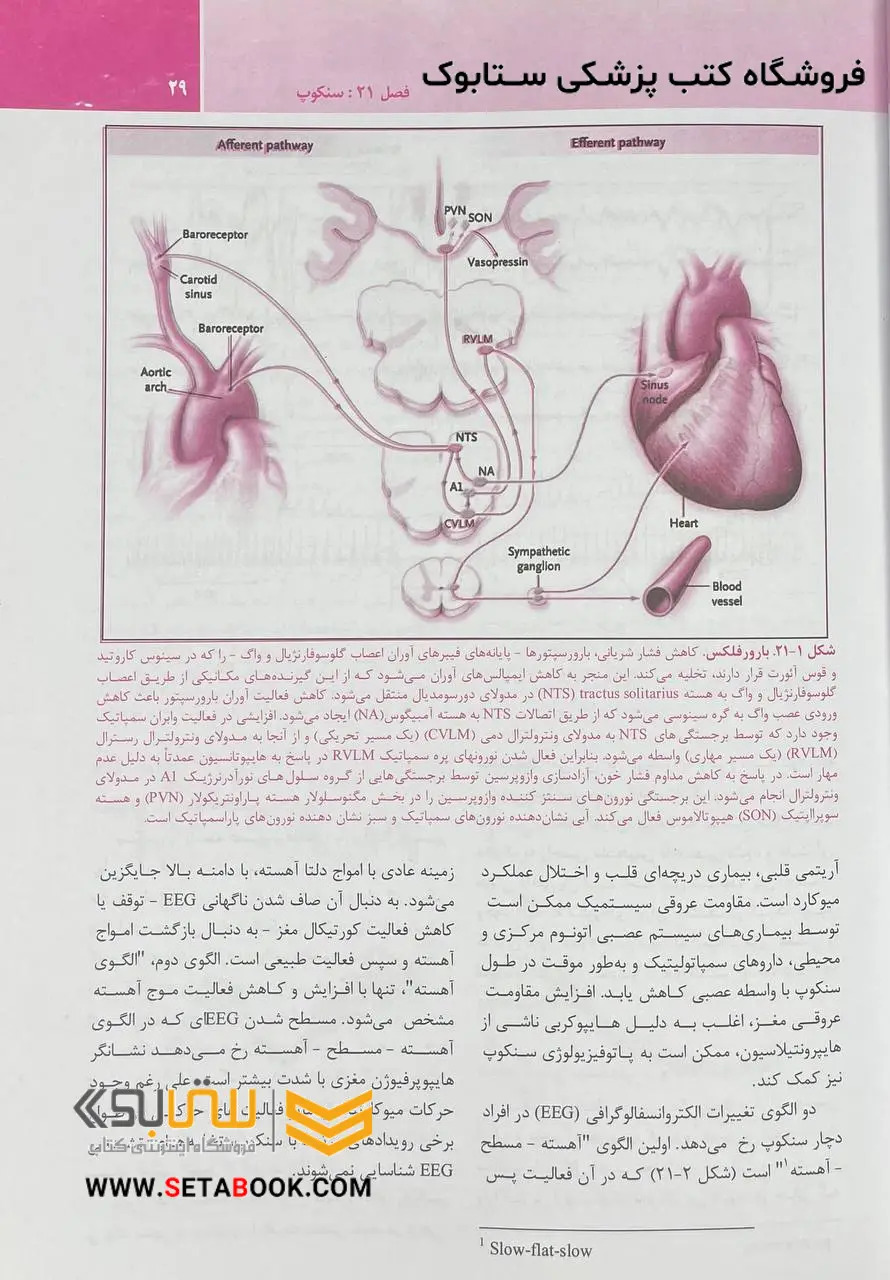 فروشگاه کتب پزشکی ستابوک
فصل ۲۱ : سنکوپ
۲۹
Afferent pathway
Efferent pathway
PVN
SON
Vasopressin
Baroreceptor
Carotid
sinus
Baroreceptor
Aortic
arch
RVLM
Sinus
node
NTS
NA
A1
CVLM
Heart
Sympathetic
ganglion
Blood
vessel
شکل ۱-۲۱. بارورفلکس. کاهش فشار شریانی، بارورسپتورها - پایانه‌های فیبرهای آوران اعصاب گلوسوفارنژیال و واگ - را که در سینوس کاروتید
و قوس آئورت قرار دارند، تخلیه می‌کند. این منجر به کاهش ایمپالس‌های آوران می‌شود که از این گیرنده‌های مکانیکی از طریق اعصاب
گلوسوفارنژیال و واگ به هسته tractus solitarius (NTS) در مدولای دورسومدیال منتقل می‌شود. کاهش فعالیت آوران بارورسپتور باعث کاهش
ورودی عصب واگ به گره سینوسی می‌شود که از طریق اتصالات NTS به هسته آمبیگوس(NA) ایجاد می‌شود. افزایشی در فعالیت وابران سمپاتیک
وجود دارد که توسط برجستگی های NTS به مدولای ونترولترال دمی (CVLM) (یک مسیر تحریکی) و از آنجا به مدولای ونترولترال رسترال
(RVLM) (یک مسیر مهاری) واسطه می‌شود. بنابراین فعال شدن نورونهای پره سمپاتیک RVLM در پاسخ به هایپوتانسیون عمدتاً به دلیل عدم
مهار است. در پاسخ به کاهش مداوم فشار خون، آزادسازی وازوپرسین توسط برجستگی‌هایی از گروه سلول‌های نورآدرنرژیک A1 در مدولای
ونترولترال انجام می‌شود. این برجستگی نورون‌های سنتز کننده وازوپرسین را در بخش مگنوسلولار هسته پاراونتریکولار (PVN) و هسته
سوپراپتیک (SON) هیپوتالاموس فعال می‌کند. آبی نشان‌دهنده نورون‌های سمپاتیک و سبز نشان دهنده نورون‌های پاراسمپاتیک است.
آریتمی قلبی، بیماری دریچه‌ای قلب و اختلال عملکرد
میوکارد است. مقاومت عروقی سیستمیک ممکن است
توسط بیماری‌های سیستم عصبی اتونوم مرکزی و
محیطی، داروهای سمپاتولیتیک و به‌طور موقت در طول
سنکوپ با واسطه عصبی کاهش یابد. افزایش مقاومت
عروقی مغز، اغلب به دلیل هایپوکربی ناشی از
هایپرونتیلاسیون، ممکن است به پاتوفیزیولوژی سنکوپ
نیز کمک کند.
دو الگوی تغییرات الکتروانسفالوگرافی (EEG) در افراد
دچار سنکوپ رخ می‌دهد. اولین الگوی "آهسته - مسطح
- آهسته¹" است (شکل ۲-۲۱) که در آن فعالیت پس
زمینه عادی با امواج دلتا آهسته، با دامنه بالا جایگزین
می‌شود. به دنبال آن صاف شدن ناگهانی EEG - توقف یا
کاهش فعالیت کورتیکال مغز - به دنبال بازگشت امواج
آهسته و سپس فعالیت طبیعی است. الگوی دوم، "الگوی
آهسته"، تنها با افزایش و کاهش فعالیت موج آهسته
مشخص می‌شود. مسطح شدن EEGای که در الگوی
آهسته - مسطح - آهسته رخ می‌دهد نشانگر
هایپوپرفیوژن مغزی با شدت بیشتر است. علی رغم وجود
حرکات
برخی رویدادهای
EEG شناسایی نمی‌شوند.
ستابوک
فروشگاه اینترنتی کتاب
WWW.SETABOOK.COM
¹ Slow-flat-slow